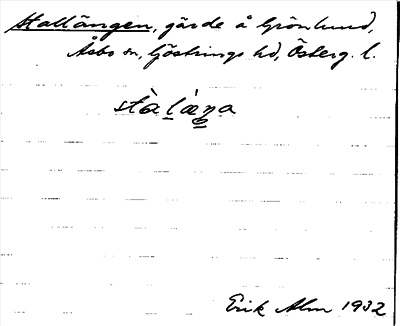 Stallängen, gärde å Grönlund,
Åsbo sn, Göstrings hd, Österg. l.
stàḷàŋa
Erik Alm 1932